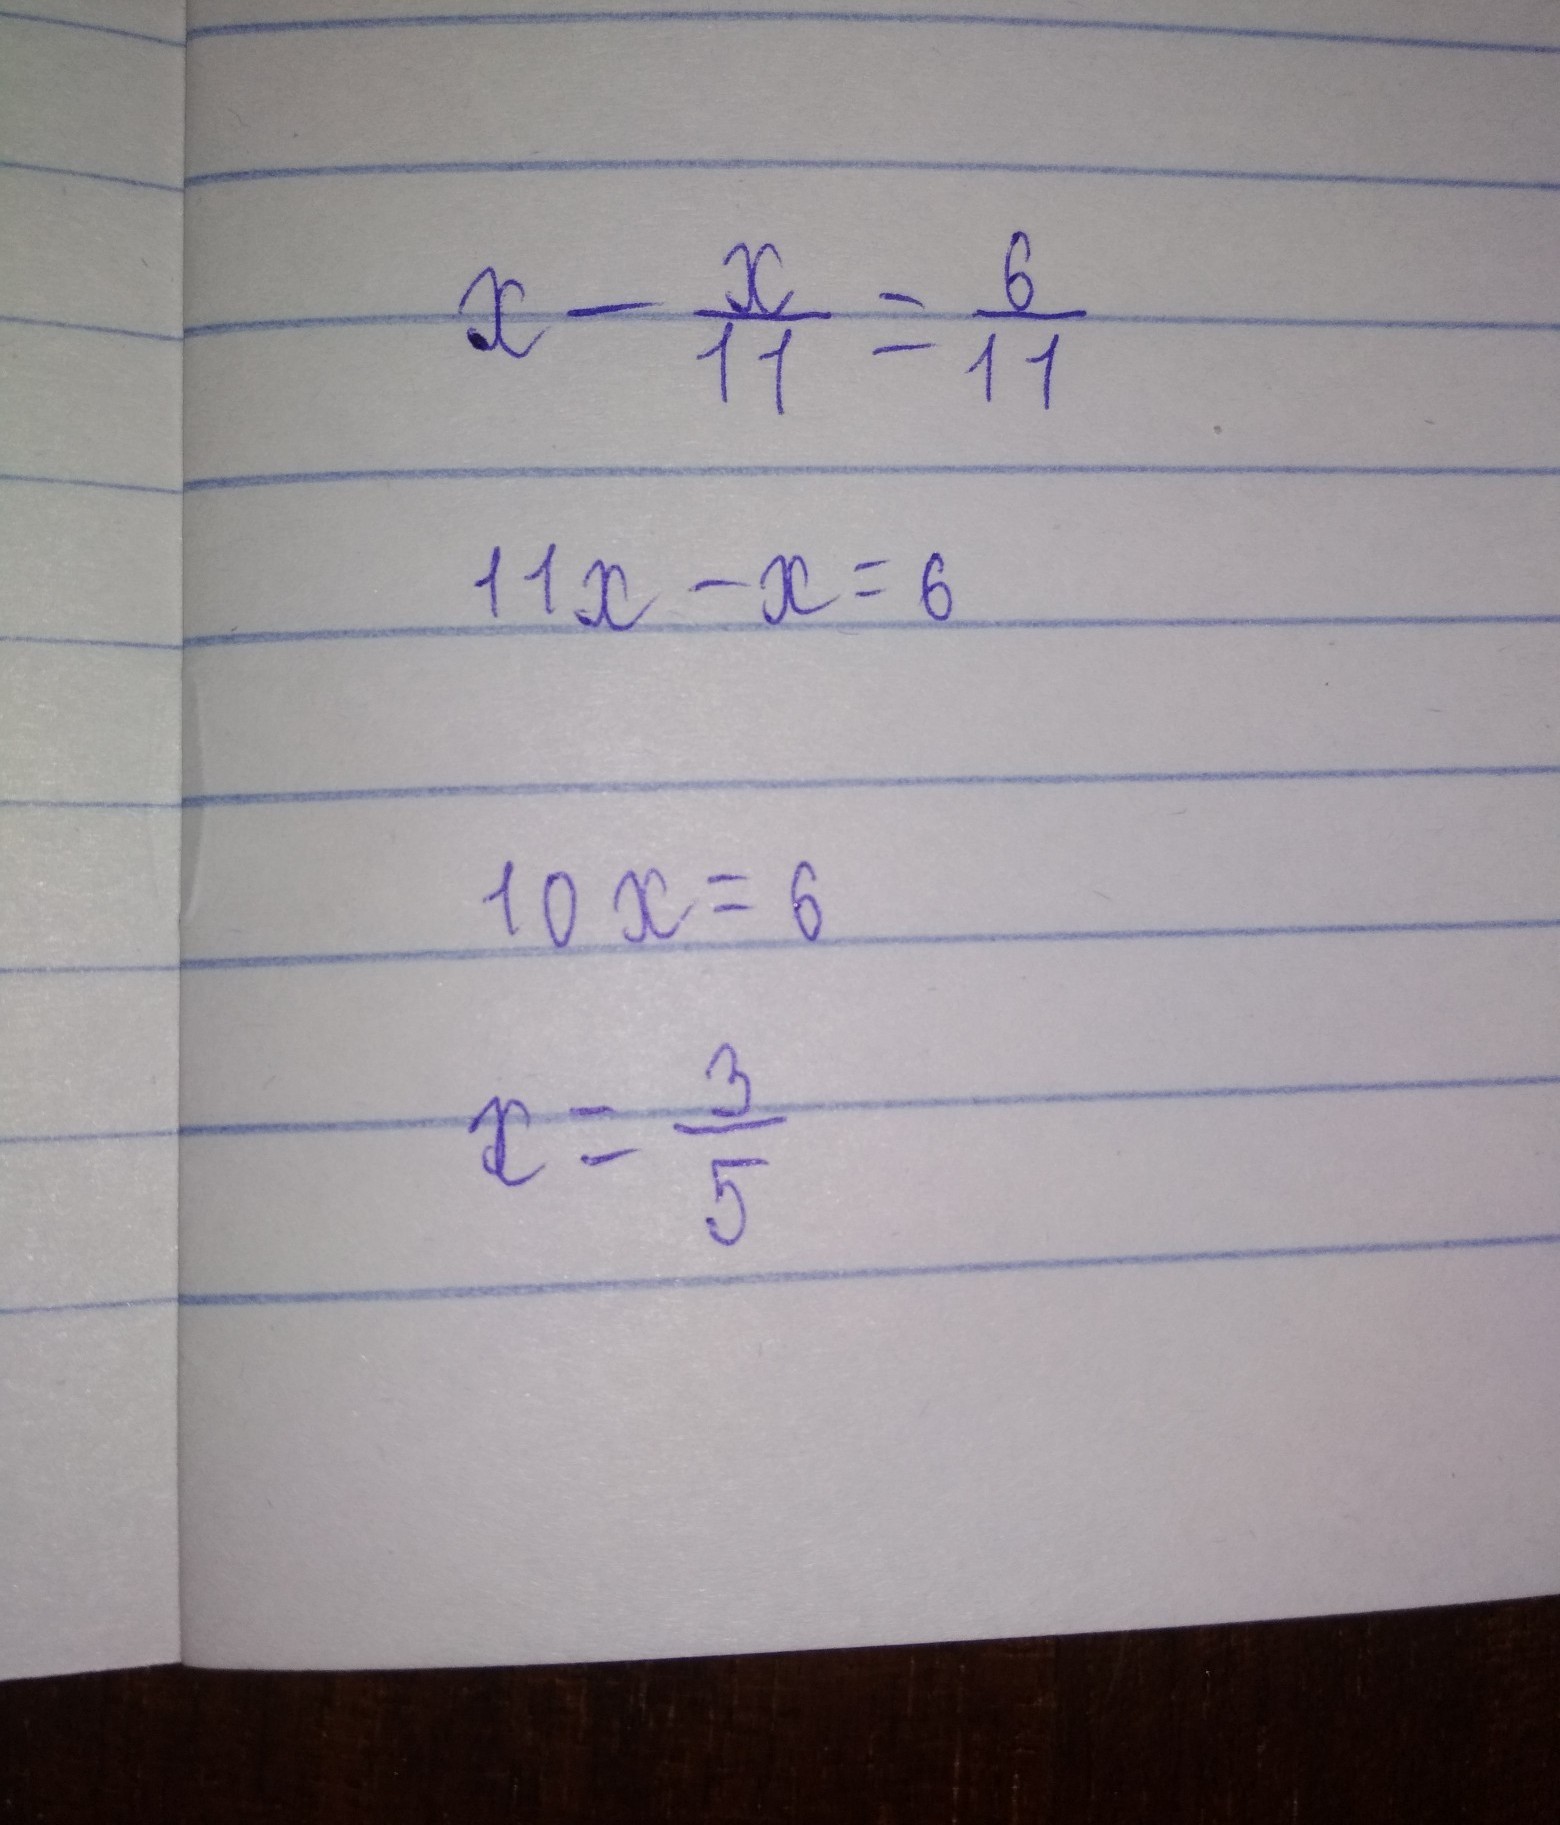 x - x/11 = 6/11
11x - x = 6
10x = 6
x = 3/5